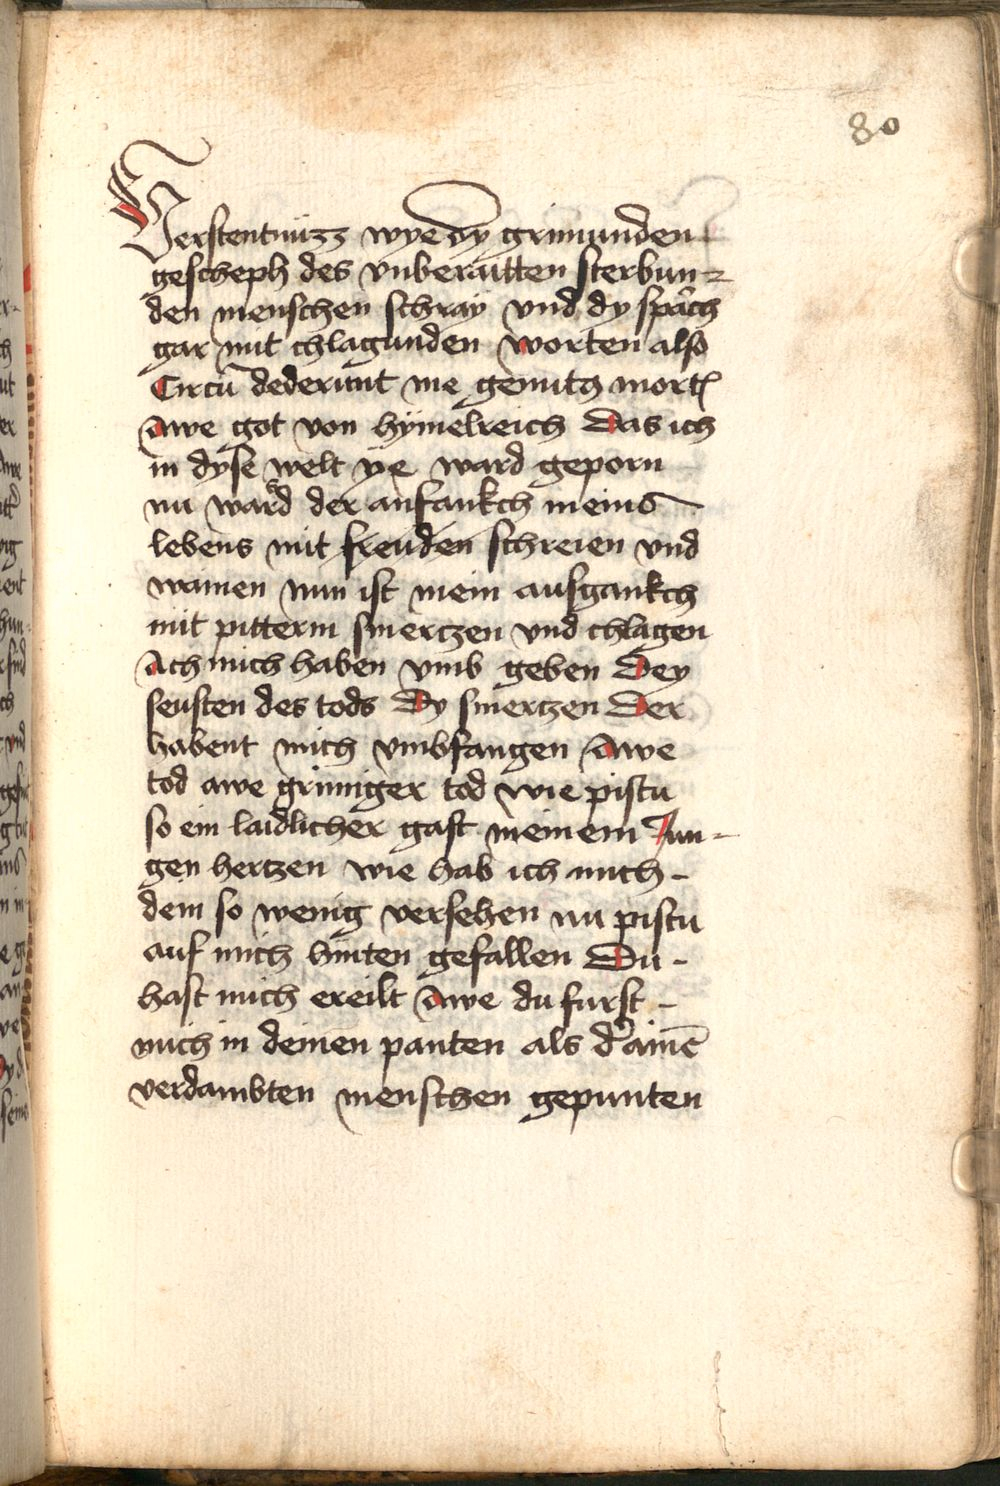 80
Verstentnüzz wye dy grimunden
gescheph des vnberaitten sterbun-
den menschen schray vnd dy sprach
gar mit chlagunden worten also
Circū dederunt me gemitꝰ mort
Awe got von hÿmelreich Das ich
in dyse welt ye ward geporn
nu ward der anfankch meins
lebens mit freuden schreien vnd
wainen nun ist mein ausgankch
mit pitterm smerczen vnd chlagen
Ach mich haben vmb geben Dey
seuften des tods Dy smerczen Der
habent mich vmbfangen Awe
tod awe grimiger tod wie pistu
so ein laidlicher gast meinem Jun-
gen hertzen wie hab ich mich
dein so wenig versehen nu pistu
auf mich hinten gefallen Du
hast mich ereilt Awe du furst
mich in deinen panten als d ainē
verdambten menschen gepunten